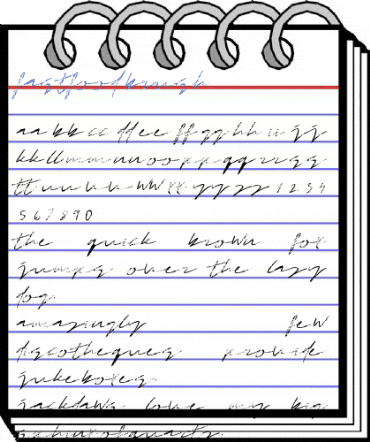 fastfoodbrush
aa bb cc dd ee ff gg hh ii jj
kk ll mm nn oo pp qq rr ss
tt uu vv ww xx yy zz 1 2 3 4
5 6 7 8 9 0
the quick brown fox
jumps over the lazy
dog
amazingly few
discotheques provide
jukeboxes
jackdaws love my big
sphinxofquartz